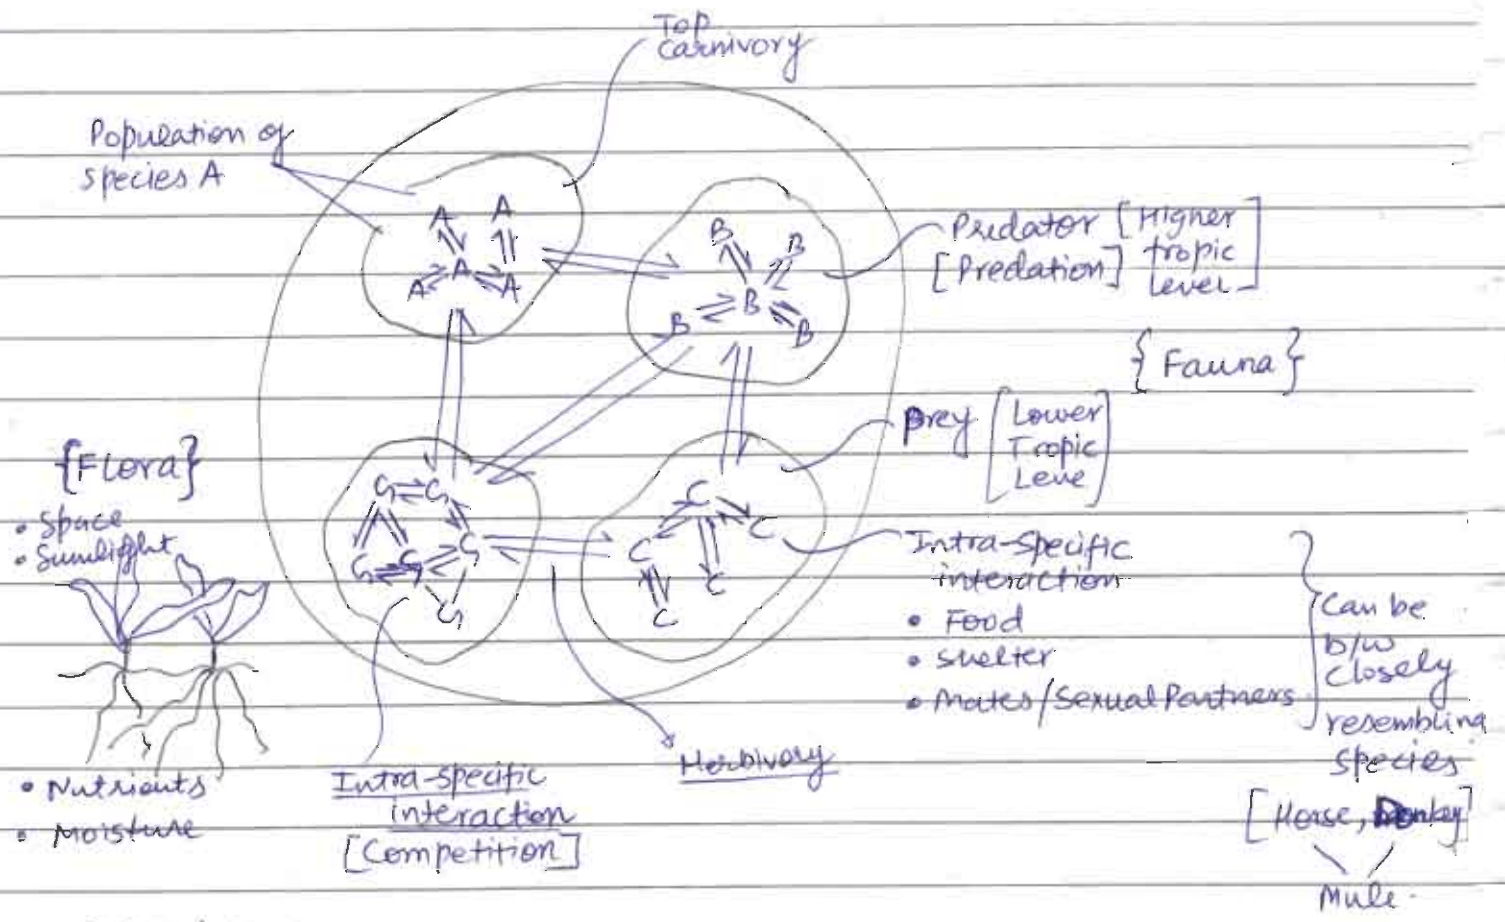 Top
carnivory
Population of
species A
A A
A
A A
B B
B
B B
Predator [Higher
[Predation] tropic
level]
{Fauna}
Prey [Lower
Tropic
Leve]
{Flora}
• Space
• Sunlight
G G
G G G
G
C C
C C
C
Intra-specific
interaction
• Food
• shelter
• Mates/Sexual Partners
Can be
b/w
closely
resembling
species
[Horse, Donkey]
Mule.
• Nutrients
• Moisture
Intra-specific
interaction
[Competition]
Herbivory